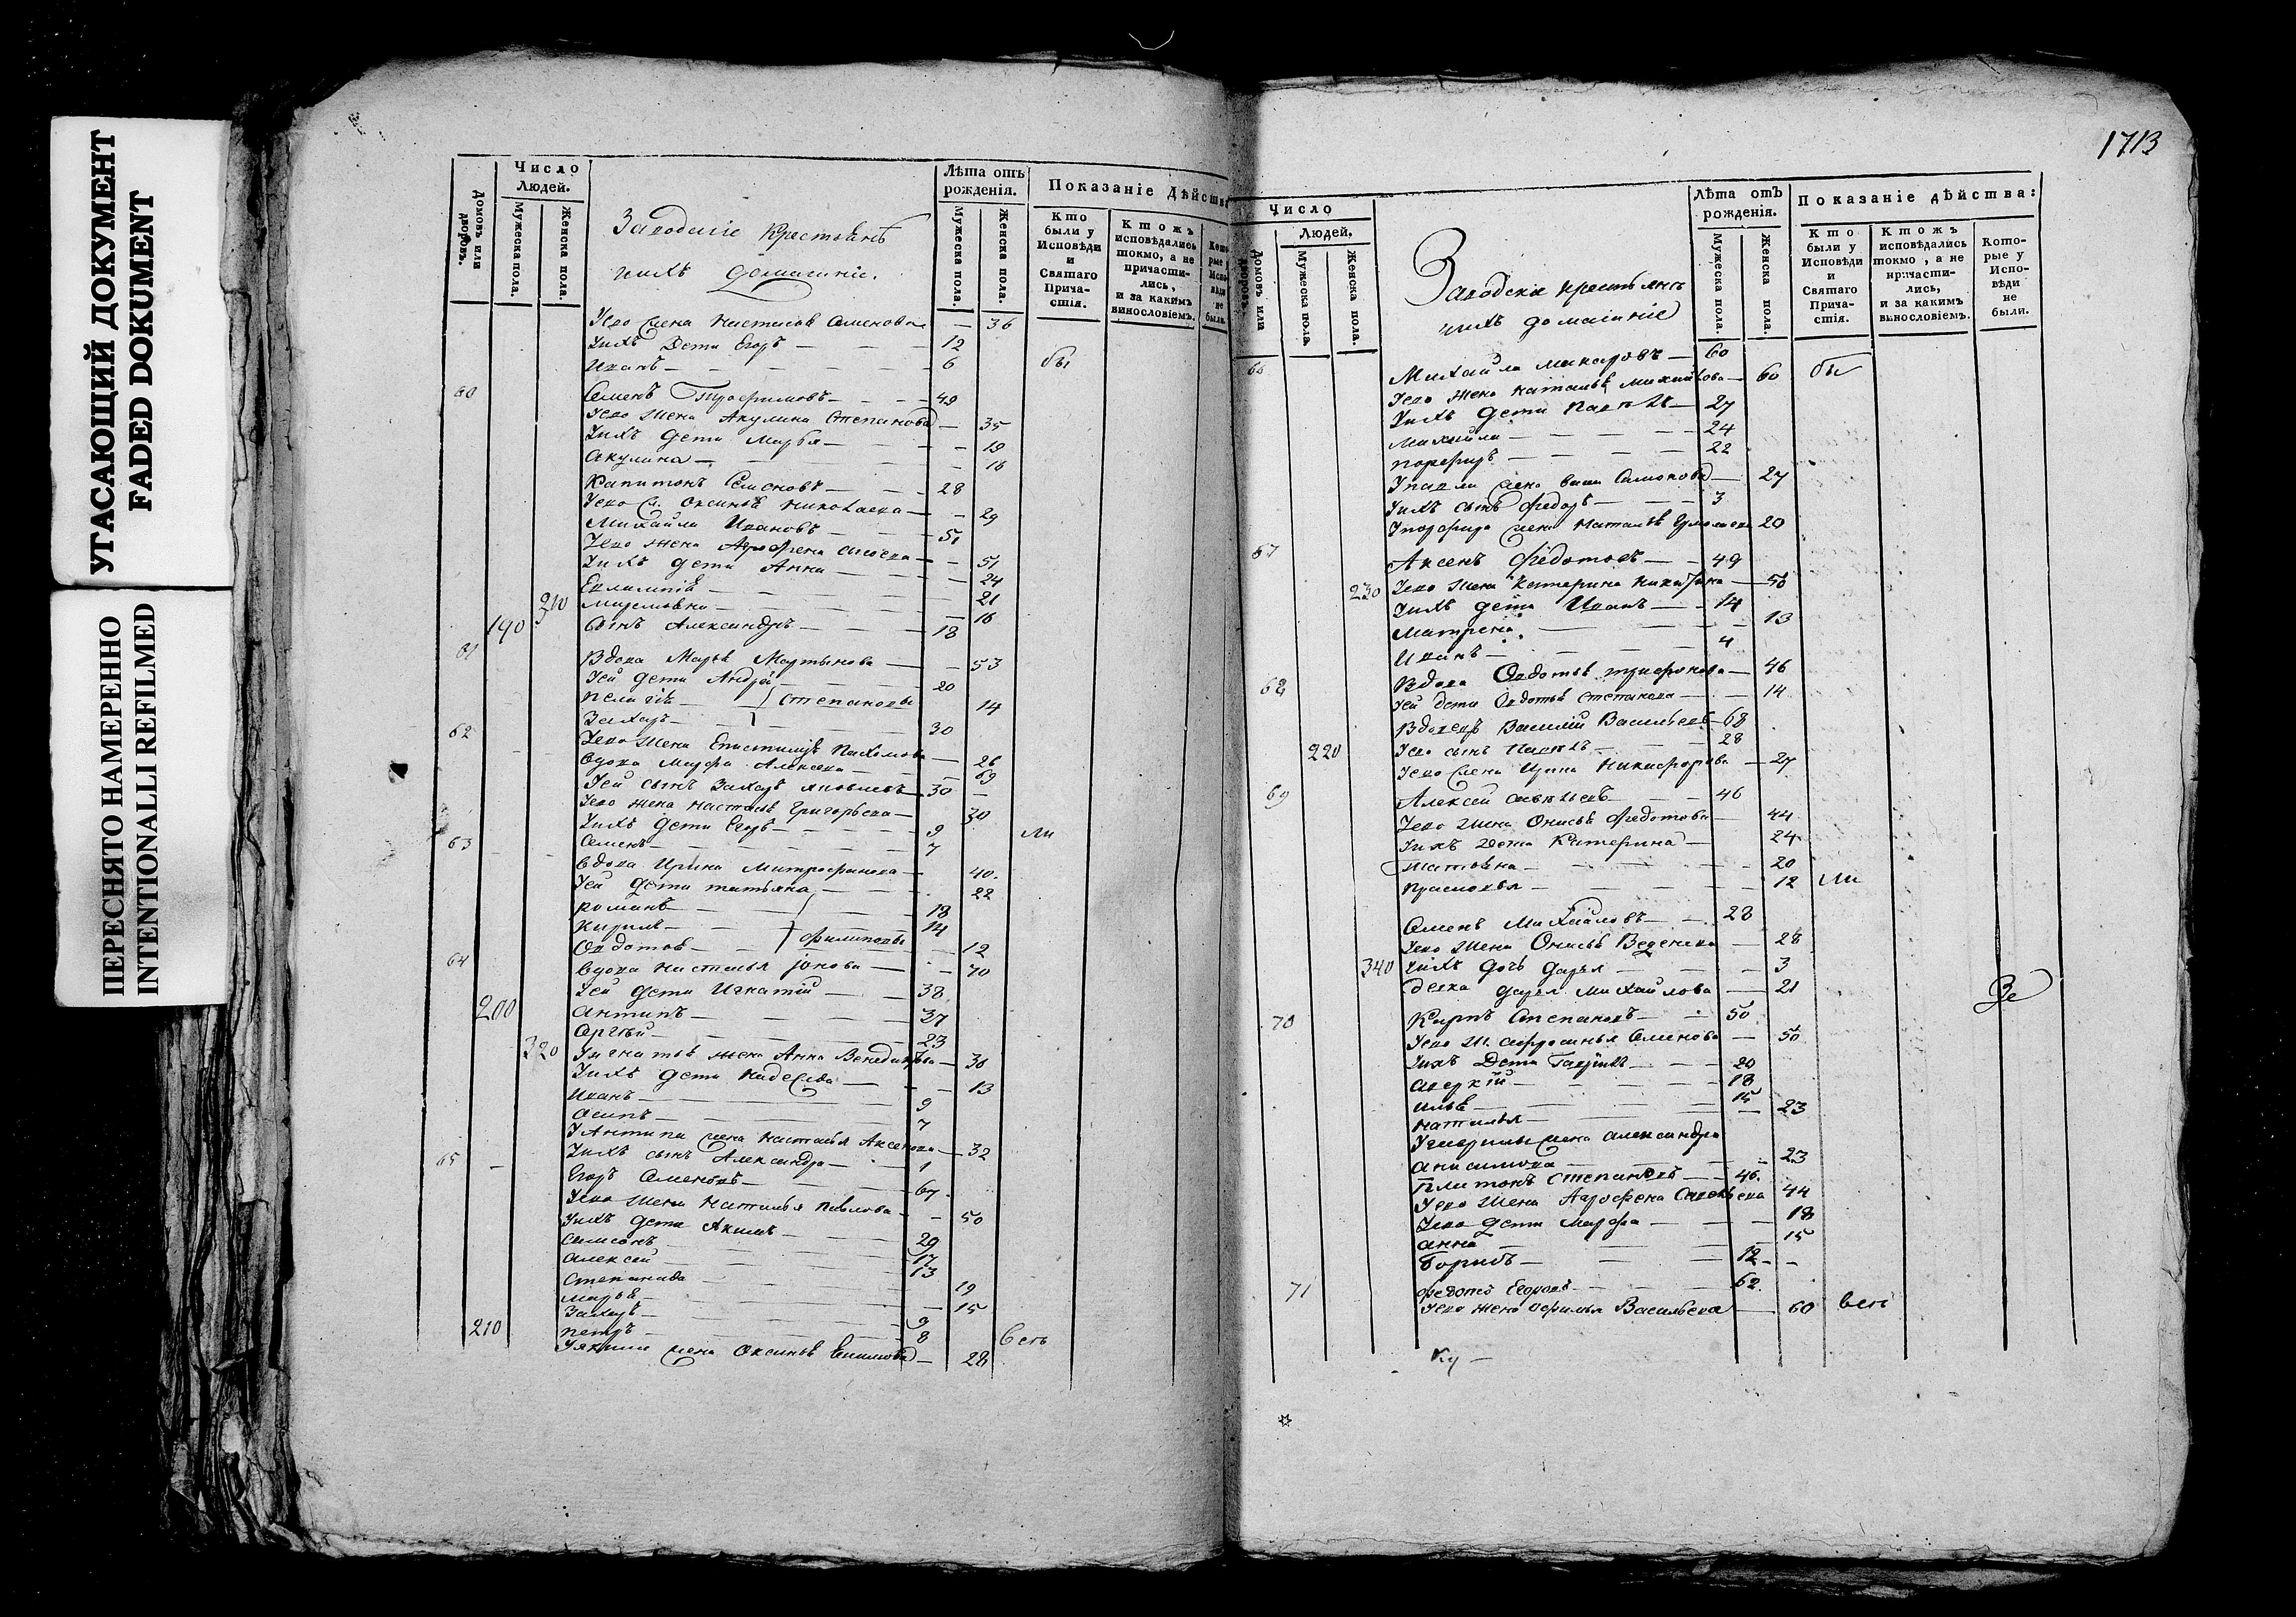 УГАСАЮЩИЙ ДОКУМЕНТ
FADED DOKUMENT
ПЕРЕСНЯТО НАМЕРЕННО
INTENTIONALLI REFILMED
Домовъ или дворовъ.
Число Людей.
Мужеска пола.
Женска пола.
Заводскіе крестьянѣ
ихъ домашніе.
Лѣта отъ рожденія.
Мужеска пола.
Женска пола.
Показаніе Дѣйств
Кто были у Исповѣди и Святаго Прича-стія.
Ктожъ исповѣдались токмо, а не причасти-лись, и за какимъ винословіемъ.
Кото-рые у Испо-вѣди не были.
Его жена Настасья Семенова — 36
Ихъ Дети Егоръ — 12
Иванъ — 6 бы
60 Семенъ Трофимовъ — 49
Его жена Акулина Степанова — 35
Ихъ дети Марья — 19
Акулина — 16
Капитонъ Семеновъ — 28
Его ж. Оксинья Николаева — 29
Михайла Ивановъ — 51
Его жена Агрофена — 51
Ихъ дети Анна — 24
21
310 — 16
190 Сынъ Александръ — 18
61 Вдова Марья Мартынова — 53
Уей дети Андрей — 20
Пелагія — Степановы 14
Захаръ — 30
62 Его жена Епистимія Пахомова — 26
Вдова Марфа Алексева — 69
Уей сынъ Захаръ Яковлевъ — 30
Его жена Настасья Григорьева — 30
Ихъ дети Егоръ — 9 ли
63 Семенъ — 7
Вдова Ирина Митрофанова — 40
Уей дети Татьяна — 22
Романъ — 18
Кирила — 14
Овдотья — Филиповы — 12
64 Вдова Настасья Іонова — 70
Уей дети Игнатій — 38
200 Антипъ — 37
Сергѣй — 23
320 Уигнатья жена Анна — 30
Ихъ дети Надежда — 13
Иванъ — 9
Осипъ — 7
Уантипа жена Наталья Аксенова — 32
Ихъ сынъ Александра — 1
65 Егоръ Семеновъ — 67
Его жена Наталья Павлова — 50
Ихъ дети Акимъ — 29
Самсонъ — 17
Алексей — 13
Степанида — 19
Марья — 15
Захаръ — 9
210 Петръ — 8 весь
Уякима жена Оксинья — 28
1713
Домовъ или дворовъ.
Число Людей.
Мужеска пола.
Женска пола.
Заводскія крестьянѣ
ихъ домашніе
Лѣта отъ рожденія.
Мужеска пола.
Женска пола.
Показаніе дѣйства:
Кто были у Исповѣди и Святаго Прича-стія.
Ктожъ исповѣдались токмо, а не причасти-лись, и за какимъ винословіемъ.
Кото-рые у Испо-вѣди не были.
66 Михайла Макаровъ — 60
Его жена Наталья — 60 бы
Ихъ дети Павелъ — 27
Михайла — 24
Порфиръ — 22
Упавла жена — 27
Ихъ сынъ Федоръ — 3
Упорфира жена Наталья Ермолаева 20
67 Аксенъ Федотовъ — 49
230 Его жена Катерина Никитина — 50
Ихъ дети Иванъ — 14
Матрена — 13
Иванъ — 4
68 Вдова Овдотья Трифонова — 46
Уей дети Овдотья Степанова — 14
Вдовецъ Василій Васильевъ — 68
220 Его сынъ Павелъ — 28
Его жена Ирина Никифорова — 27
69 Алексей — 46
Его жена Онисья Федотова — 44
Ихъ дети Катерина — 24
Татьяна — 20
Прасковья — 12 ли
Семенъ Михайловъ — 28
Его жена Онисья — 28
340 Ихъ дочь Дарья — 3
девка Дарья Михайлова — 21
70 Карпъ Степановъ — 50
Его ж. Афросинья Семенова — 50
Ихъ Дети Гаврила — 20
Аверкій — 18
Илья — 15
Наталья — 23
Угаврилы жена Александра
Анисимова — 23
Платонъ Степановъ — 46
Его жена Агрофена Савельева 44
Его дети Марфа — 18
Анна — 15
Борисъ — 12
71 Федотъ Егоровъ — 62
Его жена Офимья Васильева — 60 весь
Ку —